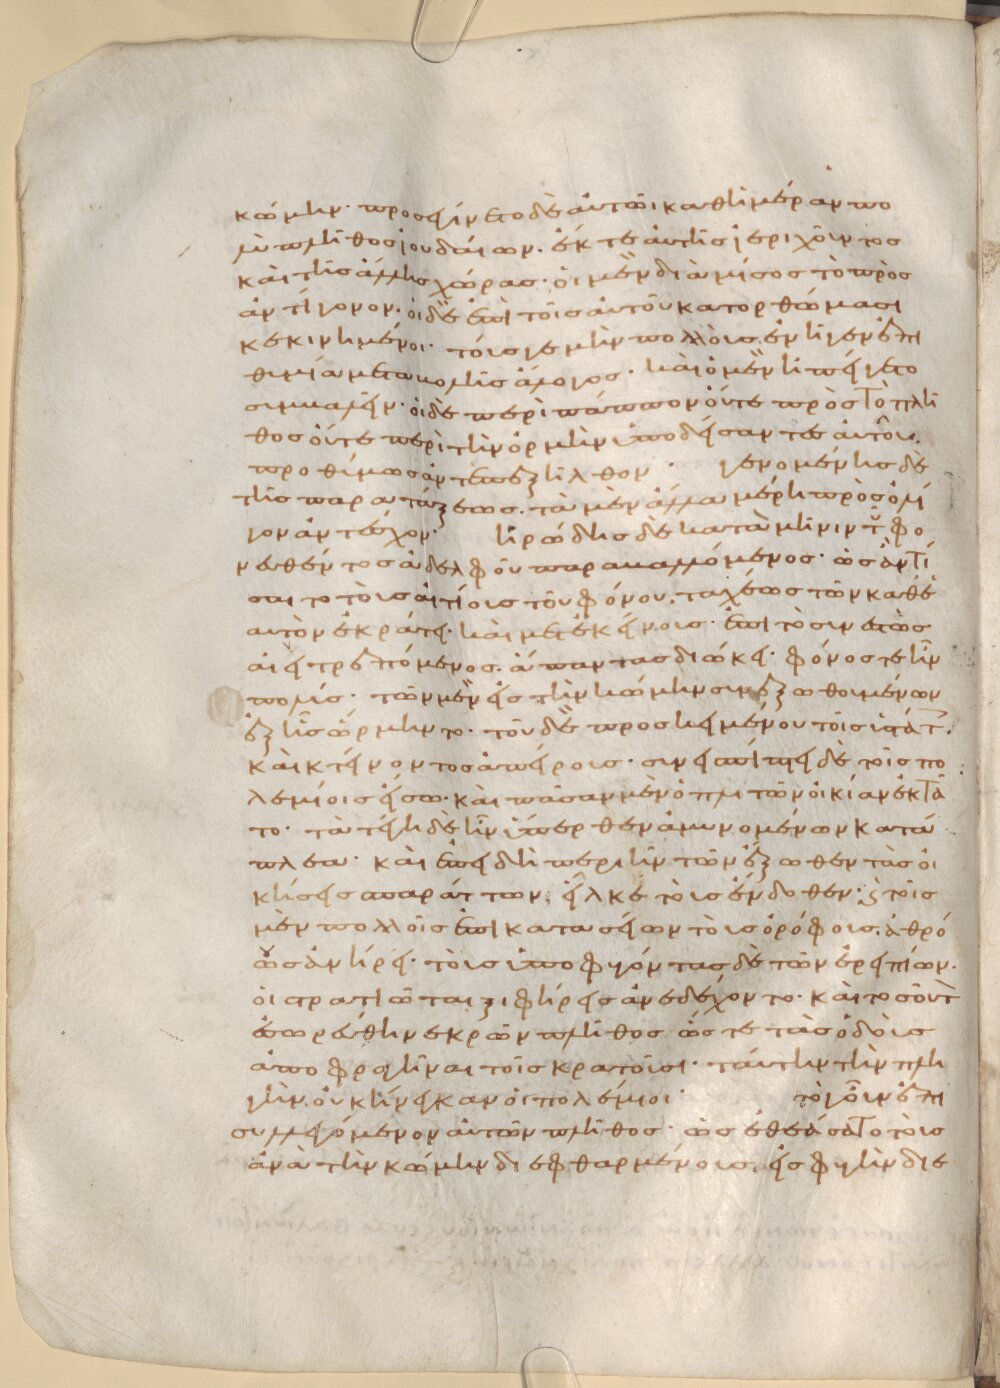 κώμην· προσεγίνετο δὲ ἀυτῶι καθημέραν πο
λὺ πλῆθος ἰουδάιων. ἐκ τε ἀυτῆς ἱεριχοῦντος
κὰι τῆς ἄλλης χώρας· ὁι μὲν διὰ μῖσος τὸ πρὸς
ἀντίγονον. ὁι δὲ ἐπὶ τοῖς ἀυτοῦ κατορθώμασι
κεκινημένοι· τόισ γε μὴν πολλοῖς ἐνῆγεν ἐπι
θυμία μεταβολῆς ἄλογος· κὰι ὁ μὲν ἠπείγετο
συμβαλεῖν· ὁι δὲ περὶ πάππον ὄυτε πρὸς τὸ πλῆ
θος ὄυτε περὶ τὴν ὁρμὴν ὑποδείσαντες ἀυτοῦ.
προθύμως ἀντεπεξῆλθον· γενομένης δὲ
τῆς παρατάξεως. τὰ μὲν ἄλλα μέρη πρὸς ὀλί
γον ἀντέσχον· ἡρώδης δὲ κατὰ μῆνιν τοῦ φο
νευθέντος ἀδελφοῦ παραβαλλόμενος· ὡς ἂν τί
σαιτο τοὺς ἀιτίους τοῦ φόνου. ταχέως τῶν καθ᾽ ἑ
αυτὸν ἐκράτει· κὰι μετ᾽ ἐκείνους· ἐπὶ τὸ συνεστὼς
ἀιεὶ τρεπόμενος. ἅπαντας διώκει· φόνος τε ἦν
πολύς· τῶν μὲν ἐις τὴν κώμην συνεξωθουμένων
ἐξ ἧς ὥρμηντο· τοῦ δὲ προσκειμένου τοῖς ὑστάτοις.
κὰι κτείνοντος ἀπείρους· συνεισπίπτει δὲ τοῖς πο
λεμίοις ἔισω· κὰι πᾶσα μὲν ὁπλιτῶν ὀικία νένακτο
τὰ τείχη δὲ ἦν ὕπερθεν ἀμυνομένων κατά
πλεα· κὰι ἐπειδὴ περιῆν τῶν ἔξωθεν τὰς ὀι
κήσεις σπαράττων. εἷλκε τοὺς ἔνδοθεν· κ τοῖς
μὲν πολλοῖς ἐπικατασείων τοὺς ὀρόφους. ἀθρό
ως ἀνήιρει· τοὺς ὑποφυγόντας δὲ τῶν ἐρειπίων·
ὁι στρατιῶται ξιφήρεις ἀνεδέχοντο· κὰι τοσοῦτον
ἐσωρεύθη νεκρῶν πλῆθος ὥστε τὰς ὁδοὺς
ἀποφραγῆναι τοῖς κρατοῦσι· τάυτην τὴν πλη
γὴν ὀυκ ἤνεγκαν ὁι πολέμιοι· τὸ γοῦν ἐπι
συλλεγόμενον ἀυτῶν πλῆθος· ὡς ἐθεάσατο τοὺς
ἀνὰ τὴν κώμην διεφθαρμένους. ἐις φυγὴν διε